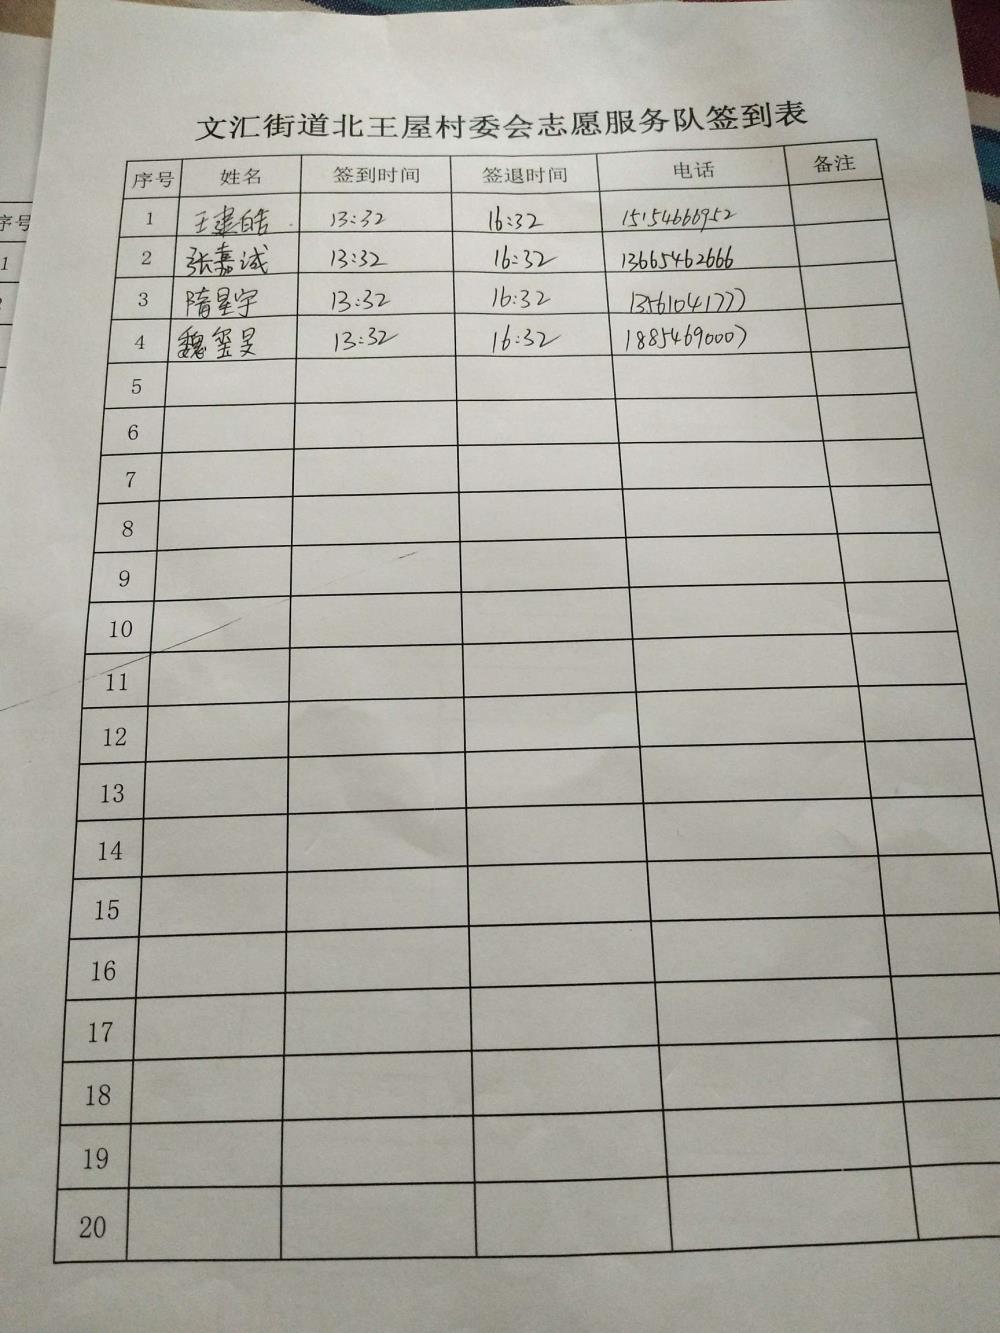 文汇街道北王屋村委会志愿服务队签到表
序号 姓名 签到时间 签退时间 电话 备注
1 王建皓 13:32 16:32 15154666952
2 张嘉诚 13:32 16:32 13665462666
3 隋星宇 13:32 16:32 13561041777
4 魏玺旻 13:32 16:32 18854690007
5
6
7
8
9
10
11
12
13
14
15
16
17
18
19
20
序号
1